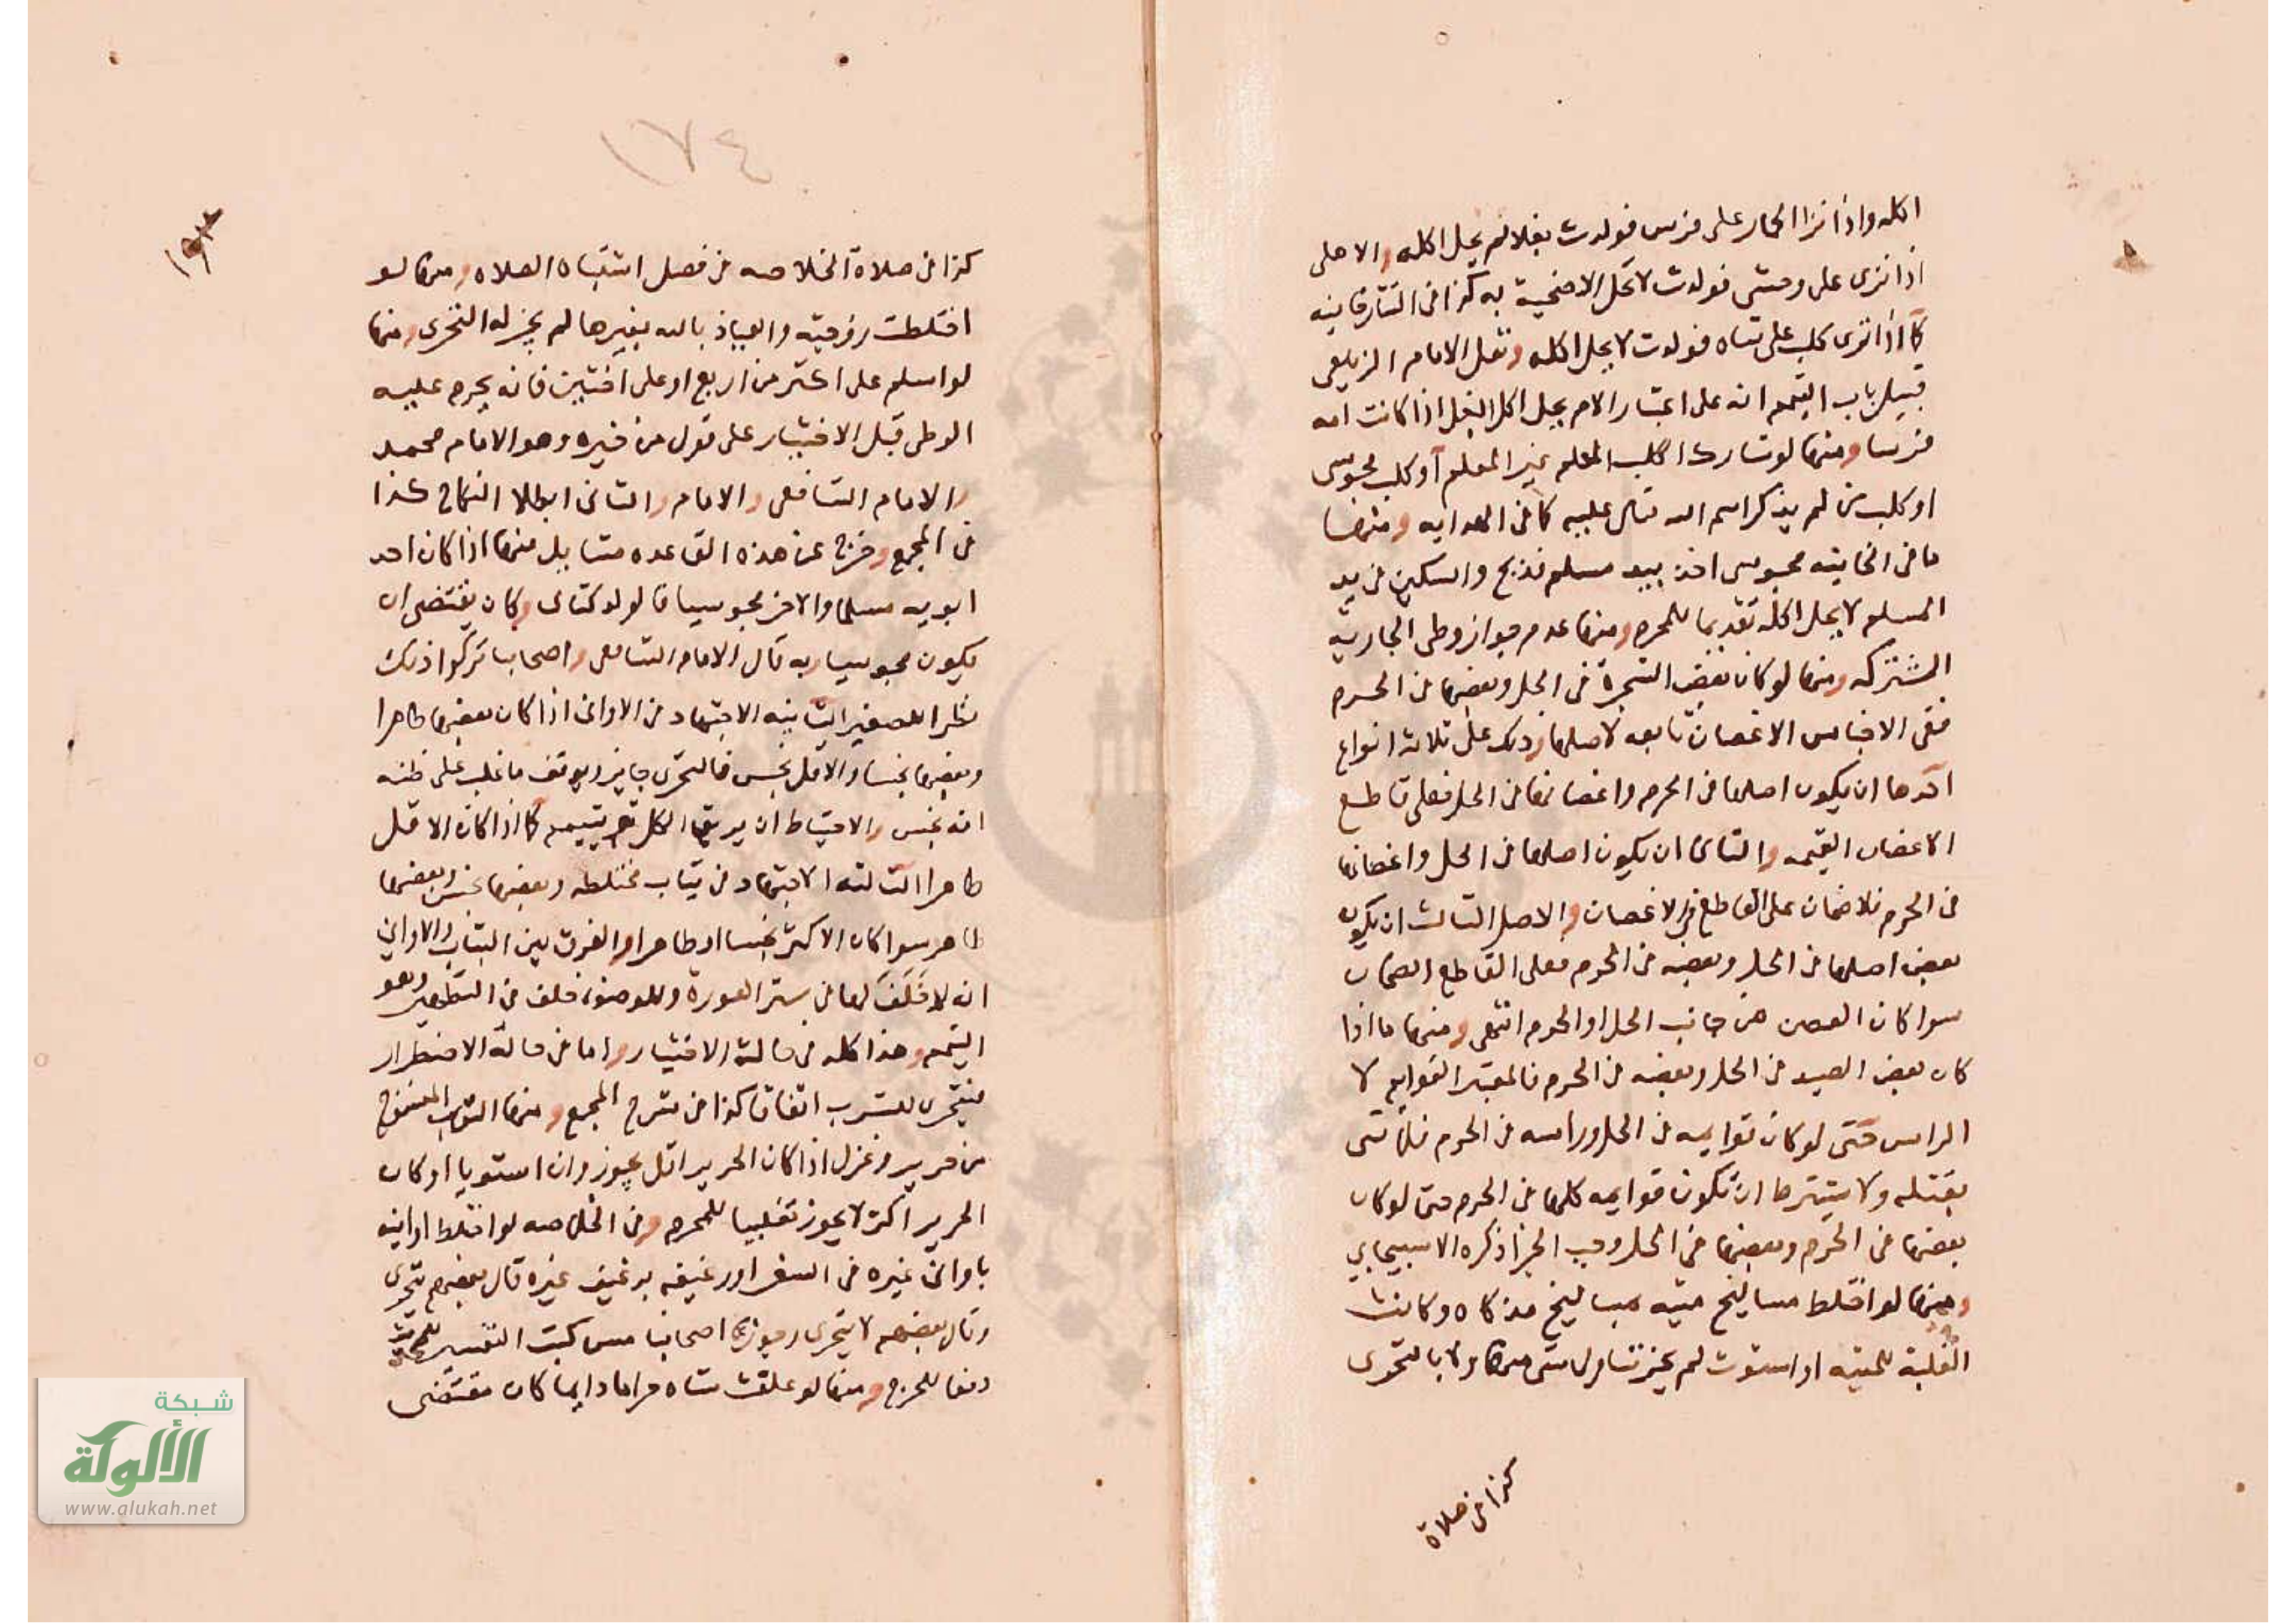 اكله واذا نزا الحمار على فرس فولدت بغلا لم يحل اكله والاهلى
اذا نزى على وحشى فولدت لا تحل الاضحية به كذا فى التتارخانيه
كما اذا نزى كلب على شاه فولدت لا يحل اكله ونقل الامام الزيلعى
قبيل باب التيمم انه على اعتبار الام يحل اكل البغل اذا كانت امه
فرسا ومنها لو شارك الكلب المعلم غير المعلم أو كلب مجوسى
او كلب من لم يذكر اسم الله تعالى عليه كما فى الهدايه ومنها
ما فى الخانيه مجوسى اخذ بيد مسلم فذبح والسكين فى يد
المسلم لا يحل اكله تقديما للمحرم ومنها عدم جواز وطى الجارية
المشتركه ومنها لو كان بعض الشجرة فى الحل وبعضها فى الحرم
ففى الاجناس الاغصان تابعه لاصلها وذلك على ثلاثة انواع
احدها ان يكون اصلها فى الحرم واغصانها فى الحل فعلى قاطع
الاغصان القيمه والثانى ان يكون اصلها فى الحل واغصانها
فى الحرم فلا ضمان على القاطع فى الاغصان والاصل الثالث ان يكون
بعض اصلها فى الحل وبعضه فى الحرم فعلى القاطع الضمان
سوا كان الغصن من جانب الحل او الحرم انتهى ومنها ما اذا
كان بعض الصيد فى الحل وبعضه فى الحرم فالمعتبر القوايم لا
الراس حتى لو كان قوايمه فى الحل وراسه فى الحرم فلا شى
بقتله ولا يشترط ان تكون قوايمه كلها فى الحرم حتى لو كان
بعضها فى الحرم وبعضها فى الحل وجب الجزا ذكره الاسبيجابي
ومنها لو اختلط مساليخ ميته بمساليخ مذكاه وكانت
الغلبة للميته او استوت لم يجز تناول شى منها ولا بالتحرى
كذا فى صلاة
١٧٤
كذا فى صلاة الخلاصه فى فصل اشتباه الصلاه ومنها لو
اختلطت زوجته والعياذ بالله بغيرها لم يجز له التحرى ومنها
لو اسلم على اكثر من اربع او على اختين فانه يحرم عليه
الوطى قبل الاختيار على قول من خيره وهو الامام محمد
والامام الشافعى والامام والثانى ابطلا النكاح كذا
فى المجمع وخرج عن هذه القاعده مسايل منها اذا كان احد
ابويه مسلما والاخر مجوسيا فالولد كتابى وكان يقتضى ان
يكون مجوسيا وبه قال الامام الشافعى واصحابنا تركوا ذلك
نظرا للصغير الثانيه الاجتهاد فى الاوانى اذا كان بعضها طاهرا
وبعضها نجسا والاقل نجس فالتحرى جايز ويريق ما غلب على ظنه
انه نجس والاحتياط ان يريق الكل ويتيمم كما اذا كان الاقل
طاهرا الثالثه الاجتهاد فى ثياب مختلطه وبعضها نجس وبعضها
طاهر سوا كان الاكثر نجسا او طاهرا والفرق بين الثياب والاوانى
انه لا خلف لها فى ستر العورة وللوضوء خلف فى التطهير وهو
التيمم وهذا كله فى حالة الاختيار واما فى حالة الاضطرار
فيتحرى للشرب اتفاقا كذا فى شرح المجمع ومنها الثوب المنسوج
من حرير وغزل اذا كان الحرير اقل يجوز وان استويا او كان
الحرير اكثر لا يجوز تغليبا للمحرم وفى الخلاصه لو اختلط اوانيه
باوانى غيره فى السفر او رغيفه برغيف غيره قال بعضهم يتحرى
وقال بعضهم لا يتحرى وجوز اصحابنا مس كتب التفسير للمحدث
دفعا للحرج ومنها لو علفت شاه حراما دايما كان مقتضى
شبكة
الألوكة
www.alukah.net